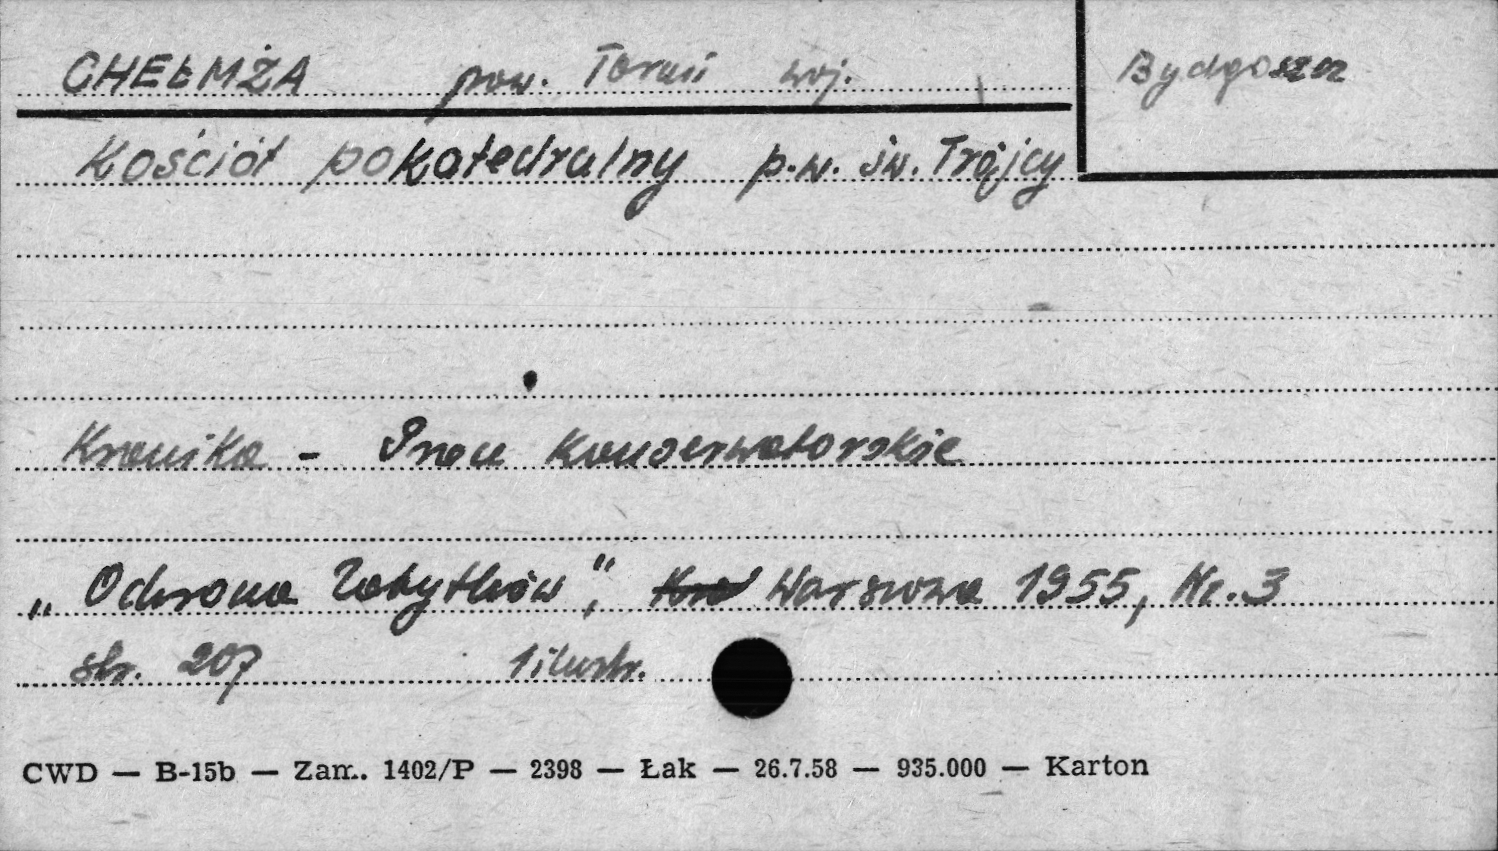 CHEŁMŻA pow. Toruń woj. Bydgoszcz
Kościół pokatedralny p.w. św. Trójcy
Kronika - Prace Konserwatorskie
„Ochrona Zabytków", Kra Warszawa 1955, Nr. 3
str. 207 1 ilustr.
CWD — B-15b — Zam. 1402/P — 2398 — Łak — 26.7.58 — 935.000 — Karton